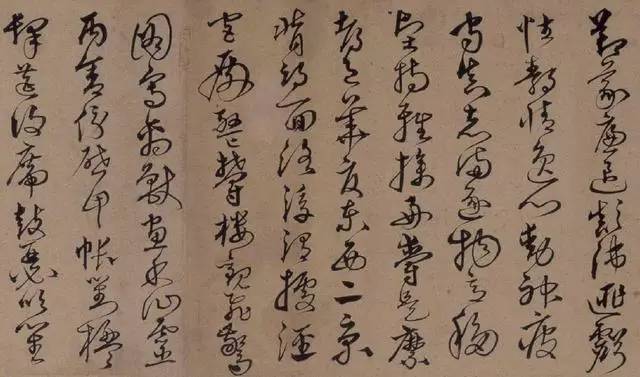 節義廉退顛沛匪虧
性静情逸心動神疲
守真志滿逐物意移
堅持雅操好爵自縻
都邑華夏東西二京
背邙面洛浮渭據涇
宮殿盤鬱樓觀飛驚
圖寫禽獸畫彩仙靈
丙舍傍啓甲帳對楹
肆筵設席鼓瑟吹笙